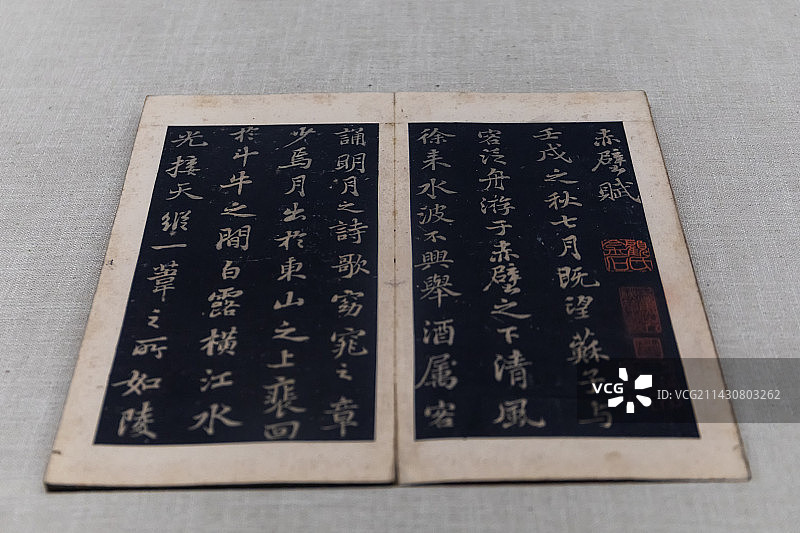 赤壁賦
壬戌之秋七月既望蘇子与
客泛舟游于赤壁之下清風
徐来水波不興舉酒属客
誦明月之詩歌窈窕之章
少焉月出於東山之上裴回
於斗牛之間白露橫江水
光接天縱一葦之所如陵
顧氏金石
VCG
VCG211430803262